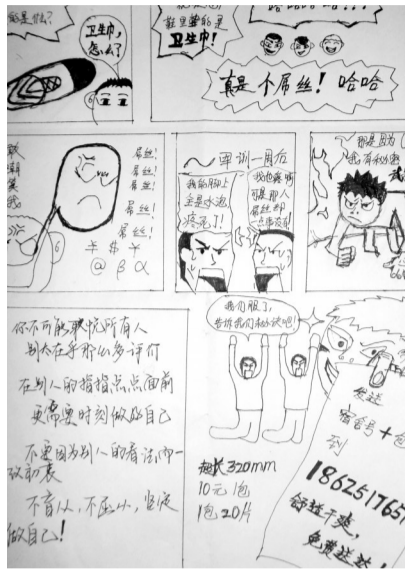 是什么?
卫生巾,
怎么了?
鞋里垫的是
卫生巾!
真是个屌丝!哈哈
敢嘲
笑
我
屌丝!
屌丝!
屌丝!
屌丝!
屌丝!
¥ $ ¥
@ β α
军训一周后
我的脚上
全是水泡
疼死了!
我也疼啊
可是那
屌丝却
点事没有!
那是因为
我有秘
武
你不可能取悦所有人
别太在乎那么多评价
在别人的指指点点面前
更需要时刻做好自己
不要因为别人的看法而一
改初衷
不盲从,不屈从,坚定
做自己!
我们服了,
告诉我们秘诀吧!
超长320mm
10元1包
1包20片
发送
宿舍号+包
到
1862517651
舒适干爽,
免费送达!